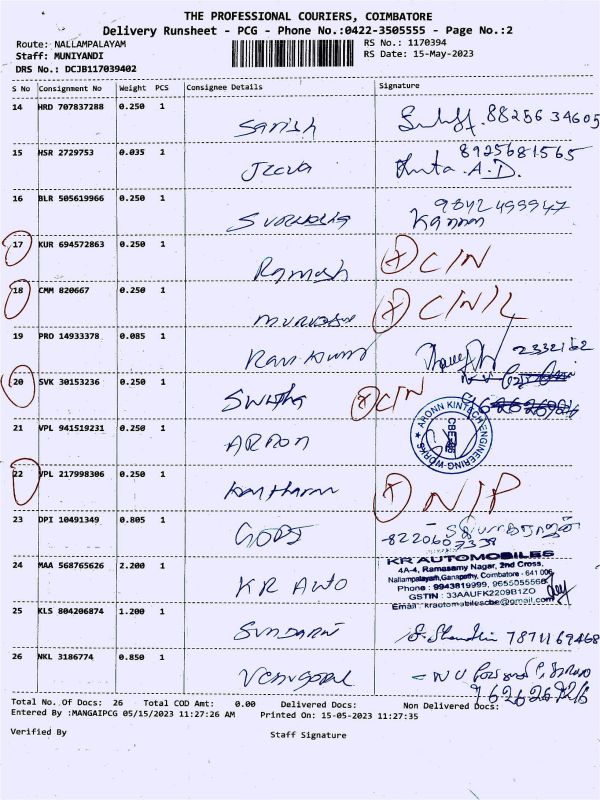 THE PROFESSIONAL COURIERS, COIMBATORE
Delivery Runsheet - PCG - Phone No.:0422-3505555 - Page No.:2
Route: NALLAMPALAYAM RS No.: 1170394
Staff: MUNIYANDI RS Date: 15-May-2023
DRS No.: DCJB117039402
S No Consignment No Weight PCS Consignee Details Signature
14 HRD 707837288 0.250 1 Satish 8825634605
15 HSR 2729753 0.035 1 Jeeva 8925681565
A.D.
16 BLR 505619966 0.250 1 9842499947
Kannan
17 KUR 694572863 0.250 1 Ramesh C/N
18 CMM 820667 0.250 1 C/N/L
19 PRO 14933378 0.085 1 Ram Kumar 2332162
20 SVK 30153236 0.250 1 Swetha C/N
21 VPL 941519231 0.250 1 ARNON
ARONN KINTECH ENGINEERING WORKS
CBE
22 VPL 217998306 0.250 1 N/P
23 DPI 10491349 0.805 1 8220607339
24 MAA 568765626 2.200 1 KR AUTO
KR AUTOMOBILES
4A-4, Ramasamy Nagar, 2nd Cross,
Nallampalayam, Ganapathy, Coimbatore - 641 006
Phone : 9943819999, 9655055566
GSTIN : 33AAUFK2209B1ZO
Email : krautomobilescbe@gmail.com
25 KLS 804206874 1.200 1 SUNDARAM 7871169468
26 NKL 3186774 0.850 1 Venugopal
Total No. Of Docs: 26 Total COD Amt: 0.00 Delivered Docs: Non Delivered Docs:
Entered By :MANGAIPCG 05/15/2023 11:27:26 AM Printed On: 15-05-2023 11:27:35
Verified By Staff Signature